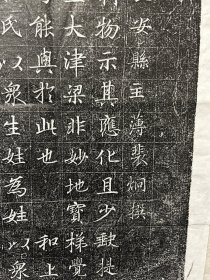 安縣主簿裴炯撰
物示其應化且少歝提
大津梁非妙地寶梯覺
能與於此也 和上
氏以衆生姓為姓以衆